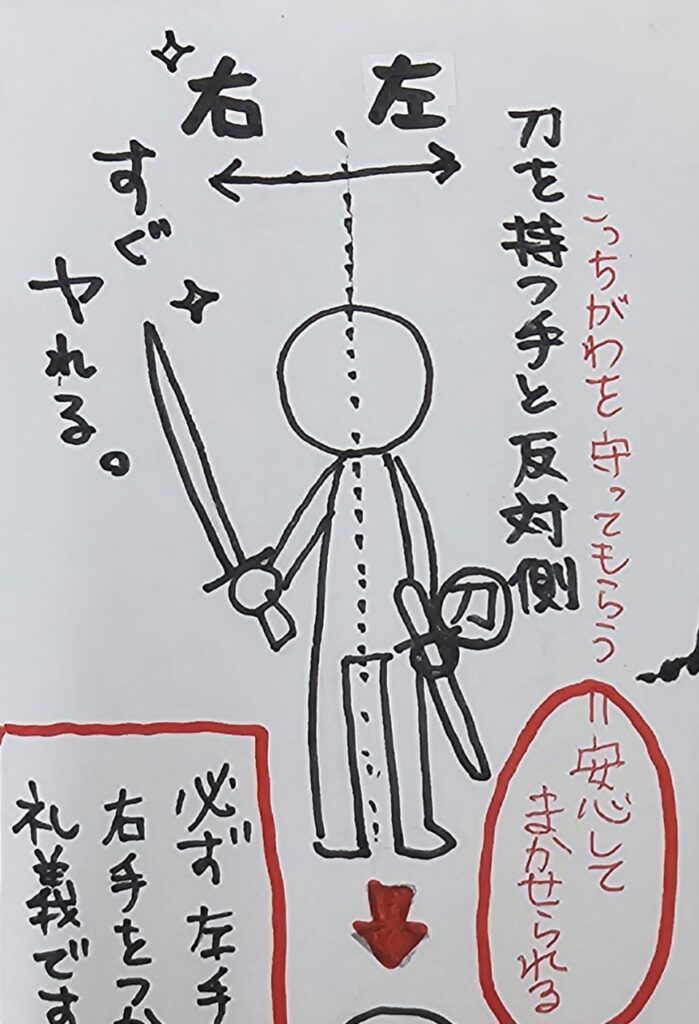 右
左
すぐ
ヤれる。
刀を持つ手と反対側
こっちがわを守ってもらう
=安心して
まかせられる
刀
必ず左手
右手をつか
礼義です